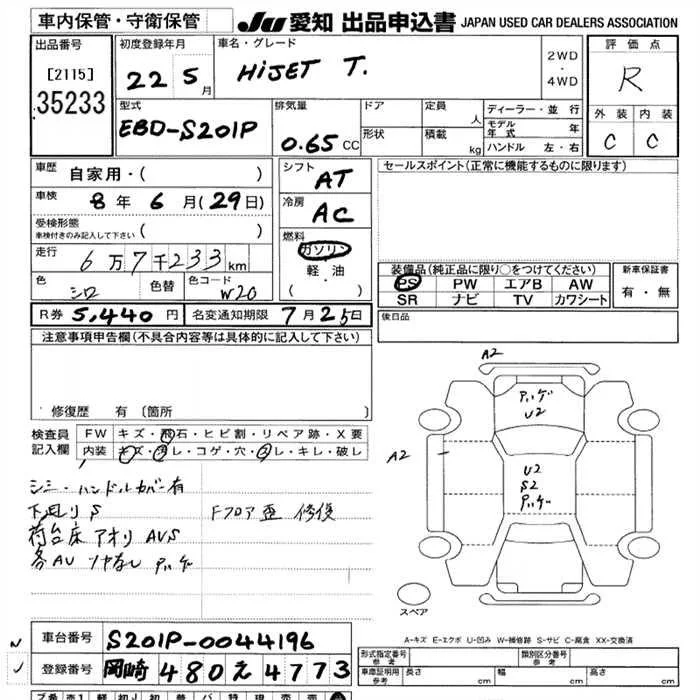 車内保管・守衛保管 JU 愛知 出品申込書 JAPAN USED CAR DEALERS ASSOCIATION
出品番号 初度登録年月 車名・グレード 評価点
[2115] 22 5月 HiJET T. 2WD・4WD R
35233
型式 排気量 ドア 定員 人 ディーラー・並行 外装 内装
EBD-S201P 0.65 CC 形状 積載 kg モデル年式 年 C C
ハンドル 左・右
車歴 自家用・( ) シフト AT セールスポイント(正常に機能するものに限ります)
車検 8年6月(29日) 冷房 AC
受検形態 ( )
車検付きのみ記入して下さい
燃料
走行 6万7千233km ガソリン
軽油
( )
色 シロ 色替 色コード W20
装備品(純正品に限り○をつけてください) 新車保証書
PS PW エアB AW 有・無
SR ナビ TV カワシート
R券 5,440円 名変通知期限 7月25日 後日品
注意事項申告欄(不具合内容等は具体的に記入して下さい)
修復歴 有〔箇所 〕
検査員記入欄 FW キズ・飛石・ヒビ割・リペア跡・X要
内装 キズ・汚レ・コゲ・穴・スレ・キレ・破レ
シミ・ハンドルカバー有
下回りS Fフロア歪 修復
荷台床 アオリ AUS
各AU ツヤなし ハゲ
A2
ハゲ
U2
A2
U2
S2
ハゲ
スペア
A-キズ E-エクボ U-凹み W-補修跡 S-サビ C-腐食 XX-交換済
車台番号 S201P-0044196
登録番号 岡崎 480 え 4773
形式指定番号 参考 類別区分番号 参考
車庫証明用 参考 長さ cm 幅 cm 高さ cm